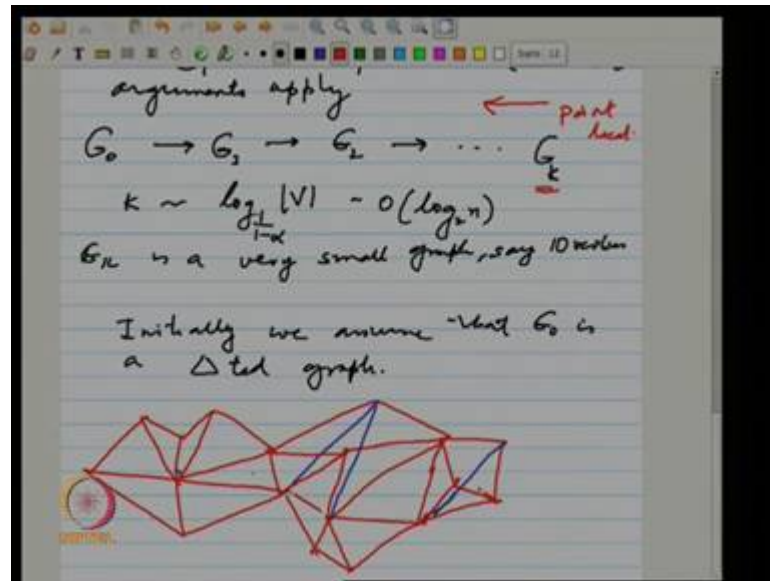 arguments apply
← point
local.
G₀ → G₁ → G₂ → ... G_k
k ~ log_{1/(1-α)} |V| ~ O(log₂ n)
G_k is a very small graph, say 10 vertices
Initially we assume that G₀ is
a Δted graph.